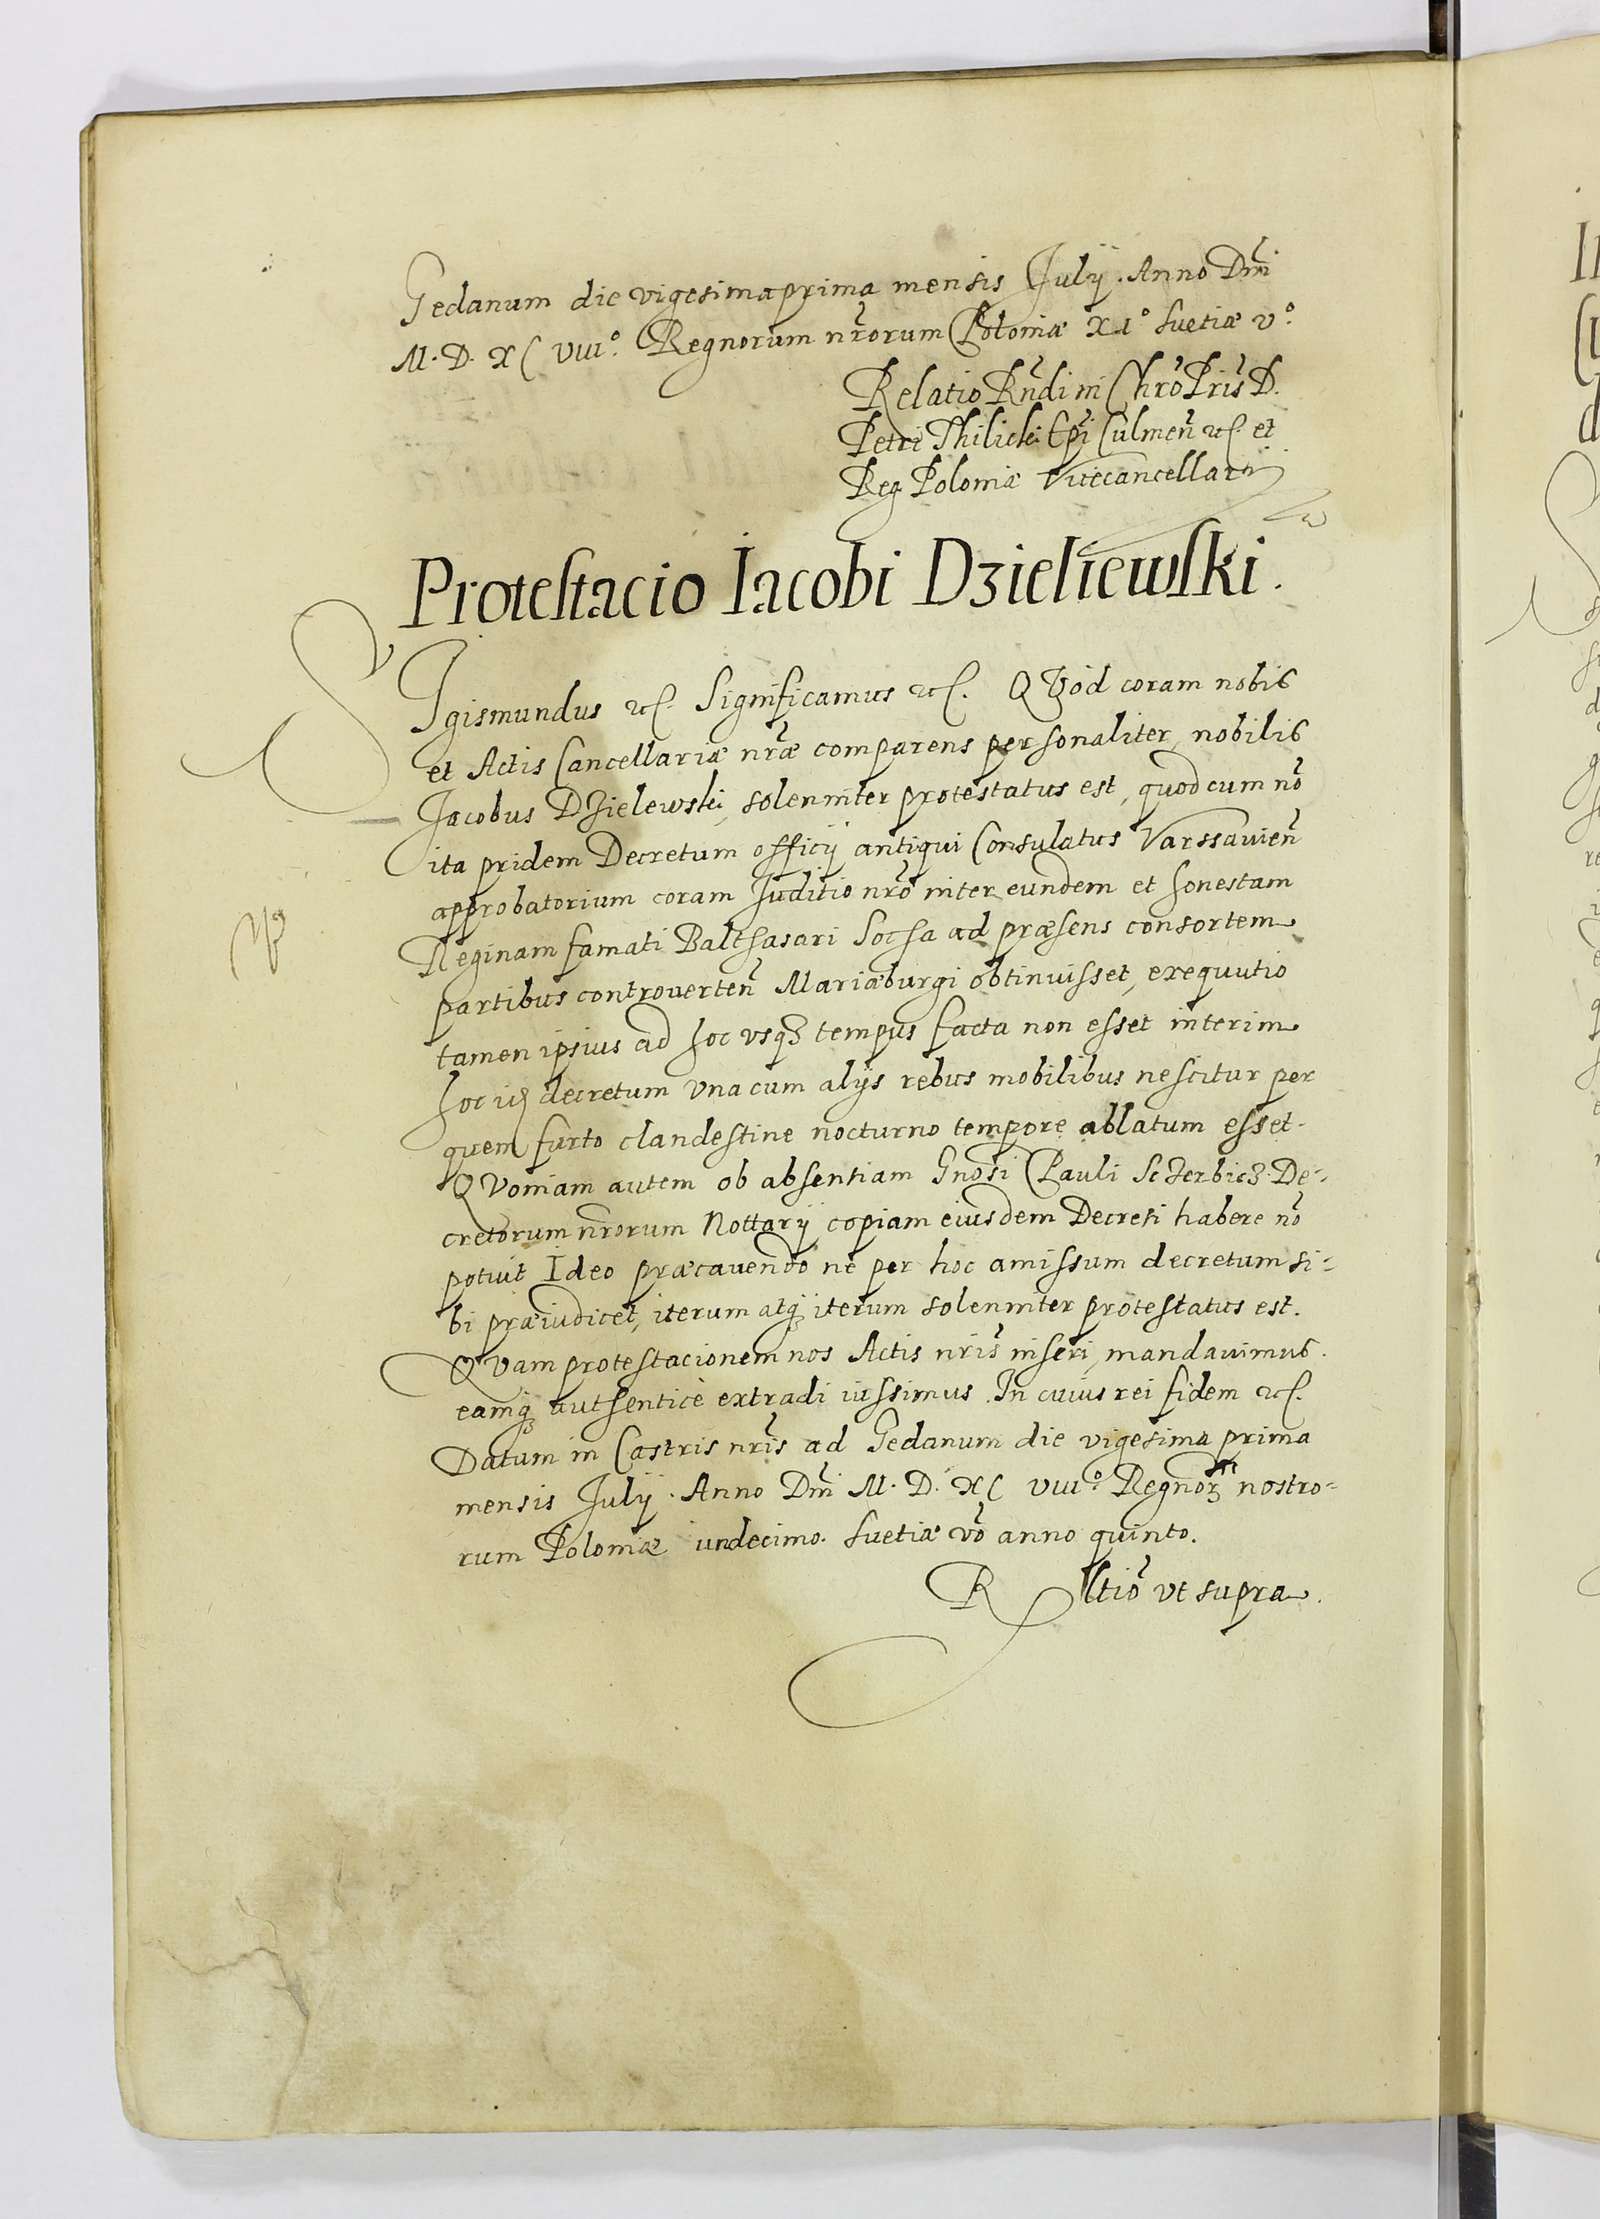 Gedanum die vigesima prima mensis Julij. Anno Dm̃i
M. D. XC VIII.° Regnorum nr̃orum Poloniæ XI° Suetiæ V.°
Relatio Rñdi in Chr̃o Pr̃is D.
Petri Thilicki Epĩ Culmeñ etc. et
Reg Poloniæ Vicecancellarij
Protestacio Iacobi Dzieliewski.
SIgismundus etc. Significamus etc. QVod coram nobis
et Actis Cancellariæ nr̃æ comparens personaliter, nobilis
Jacobus DZielewski, solenniter protestatus est, quod cum nõ
ita pridem Decretum officij antiqui Consulatus Varssavieñ
approbatorium coram Juditio nr̃o inter eundem et honestam
Reginam famati Balthasari Socha ad præsens consortem
partibus controverteñ Mariæburgi obtinuisset, exequutio
tamen ipsius ad hoc vsqꝫ tempus facta non esset interim
hoc decretum vna cum alijs rebus mobilibus nescitur per
quem furto clandestine nocturno tempore ablatum esset.
QVoniam autem ob absentiam Gnosi Pauli Sczerbicz De-
cretorum nr̃orum Nottarij copiam eiusdem Decreti habere nõ
potuit Ideo præcauendo ne per hoc amissum decretum si-
bi præiudicet, iterum atqꝫ iterum solenniter protestatus est.
QVam protestacionem nos Actis nr̃is inseri mandauimus.
eamqꝫ authenticè extradi iussimus. In cuius rei fidem etc.
Datum in Castris nr̃is ad Gedanum die vigesima prima
mensis Julij. Anno Dm̃i M. D. XC VIII.° Regnorꝫ nostro-
rum Poloniæ undecimo. Suetiæ võ anno quinto.
Rltiõ vt supra.